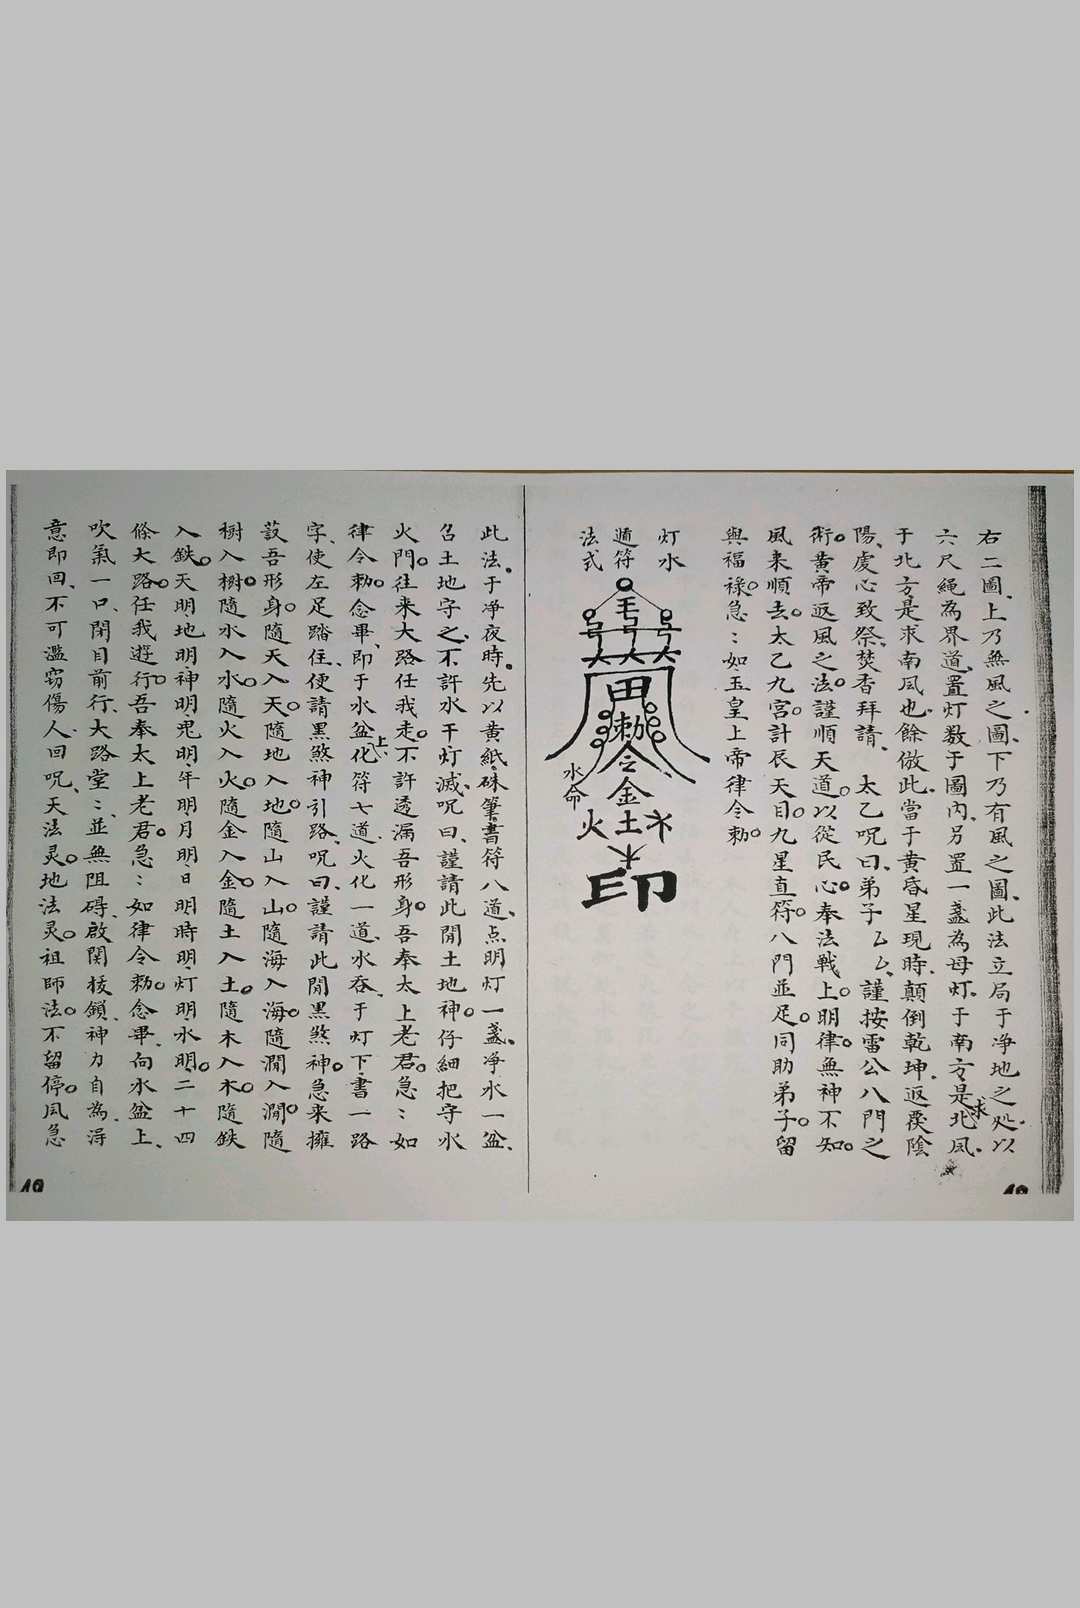 右二圖、上乃無風之圖、下乃有風之圖、此法立局于净地之处以
六尺繩為界道、置灯数于圖内、另置一盞為母灯、于南方是求北风、
于北方是求南风也、餘倣此、當于黄昏星現時、顛倒乾坤、返覆陰
陽、虔心致祭、焚香拜請、太乙咒曰、弟子厶厶、謹按雷公八門之
術。黄帝返風之法。謹順天道。以從民心。奉法戰上。明律無神不知。
風来順去。太乙九宫。計辰天目。九星直符。八門並足。同助弟子。留
與福祿。急：如玉皇上帝律令勅。
灯水
遁符
法式
毛
号号号
大大大
田
勅
令
水命
金
火土木
水
印
此法、于净夜時、先以黄紙、硃筆書符八道、点明灯一盞、净水一盆、
召土地守之、不許水干灯滅、咒曰、謹請此間土地神。仔細把守水
火門。往来大路任我走。不許透漏吾形身。吾奉太上老君。急：如
律令勅。念畢、即于水盆上、化符七道、火化一道、水吞、于灯下、書一路
字、使左足踏住、便請黑煞神引路、咒曰、謹請此間黑煞神。急来擁
護吾形身。隨天入天。隨地入地。隨山入山。隨海入海。隨澗入澗。隨
樹入樹。隨水入水。隨火入火。隨金入金。隨土入土。隨木入木。隨鉄
入鉄。天明地明、神明鬼明、年明月明、日明時明、灯明水明。二十四
條大路。任我遊行。吾奉太上老君。急：如律令勅。念畢、向水盆上、
吹氣一口、閉目前行、大路堂：、並無阻碍、啟関棱鎖、神力自為、淂
意即回、不可濫窃傷人、回咒、天法灵。地法灵。祖師法。不留停。风急